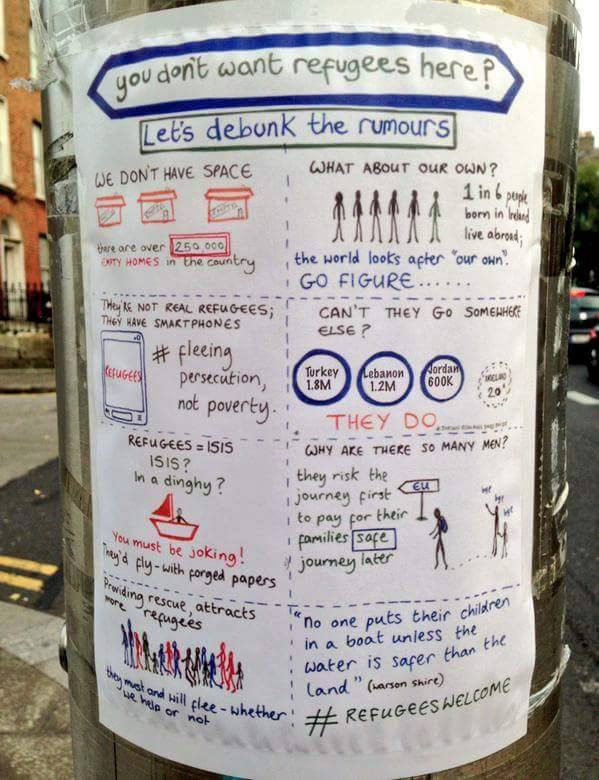 you don't want refugees here?
Let's debunk the rumours
WE DON'T HAVE SPACE
there are over 250,000
EMPTY HOMES in the country
WHAT ABOUT OUR OWN?
1 in 6 people
born in Ireland
live abroad;
the world looks after "our own".
GO FIGURE......
THEY'RE NOT REAL REFUGEES;
THEY HAVE SMARTPHONES
REFUGEES
# fleeing
persecution,
not poverty.
CAN'T THEY GO SOMEWHERE
ELSE?
Turkey
1.8M
Lebanon
1.2M
Jordan
600K
IRELAND
20*
THEY DO
REFUGEES = ISIS
ISIS?
In a dinghy?
You must be joking!
They'd fly-with forged papers
WHY ARE THERE SO MANY MEN?
they risk the
journey first
to pay for their
families safe
journey later
EU
Providing rescue, attracts
more refugees
they must and will flee - whether
we help or not
"No one puts their children
in a boat unless the
water is safer than the
land" (warson shire)
# REFUGEES WELCOME